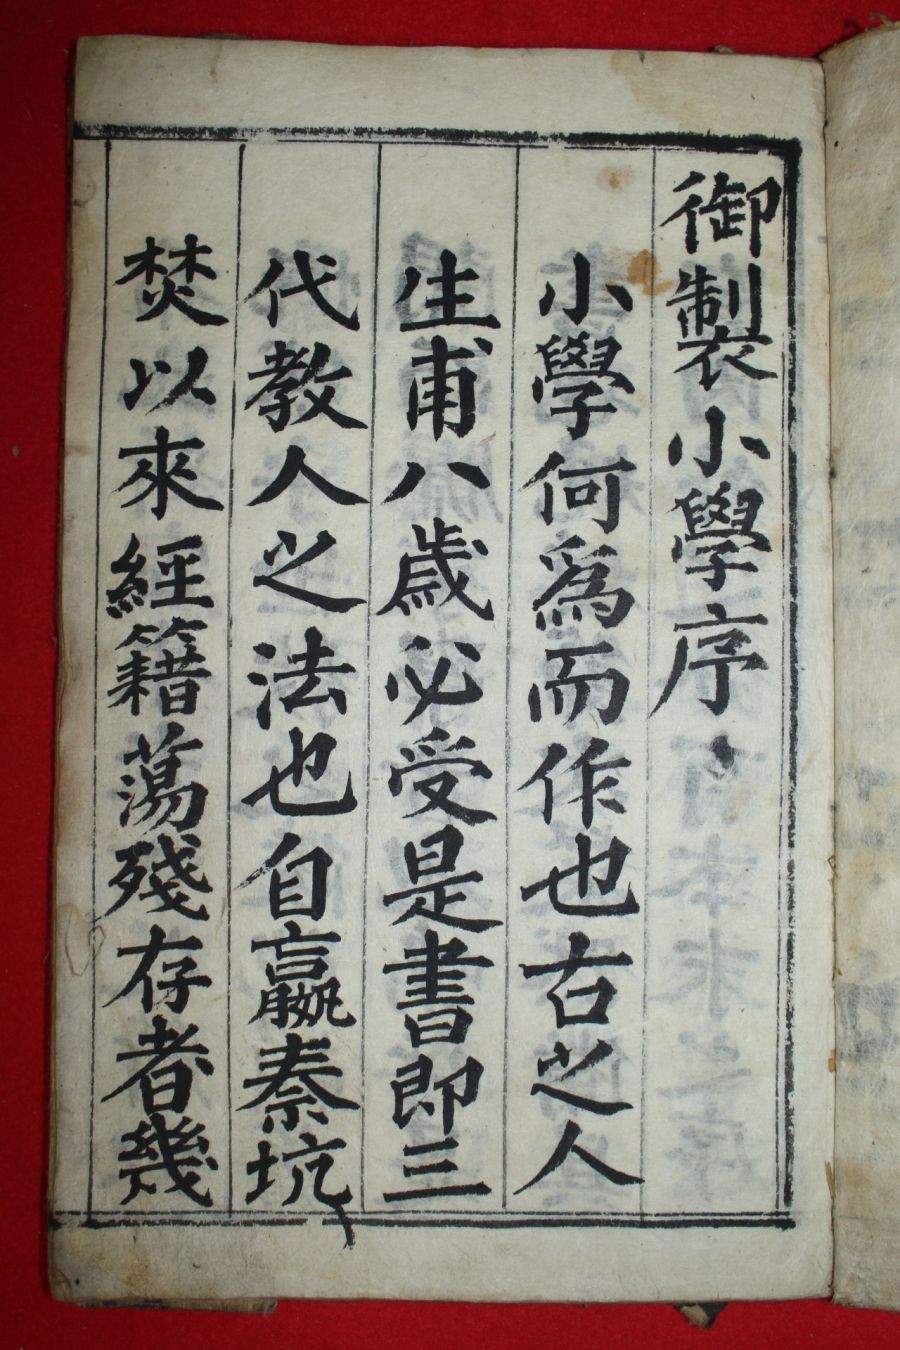 御製小學序
小學何爲而作也古之人
生甫八歲必受是書即三
代教人之法也自嬴秦坑
焚以來經籍蕩殘存者幾